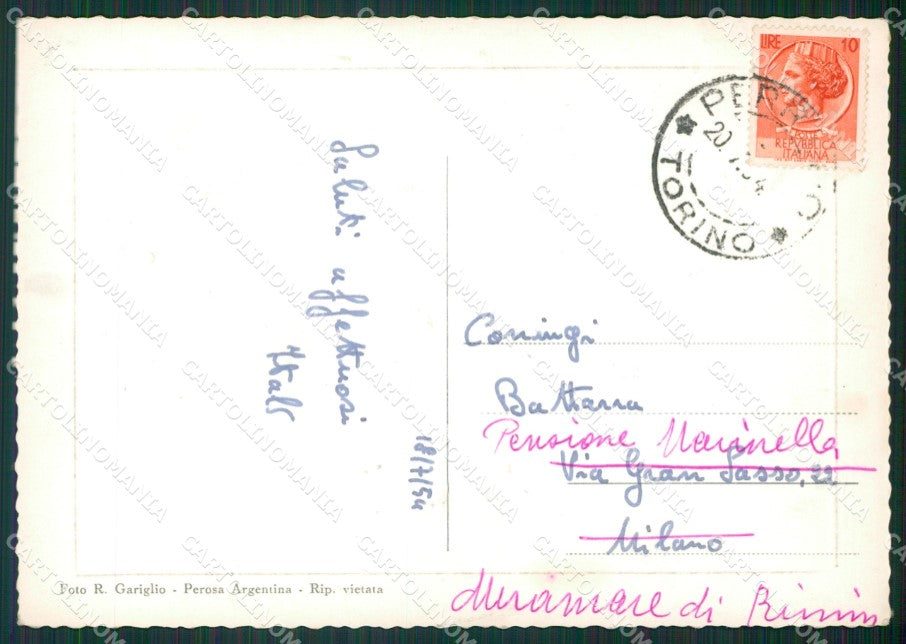 LIRE 10
POSTE
REPVBBLICA
ITALIANA
TORINO
Saluti affettuosi
Italo
18/7/54
Coniugi
Battarra
Pensione Marinella
Via Gran Sasso, 22
Milano
Miramare di Rimini
Foto R. Gariglio - Perosa Argentina - Rip. vietata
CARTOLINOMANIA